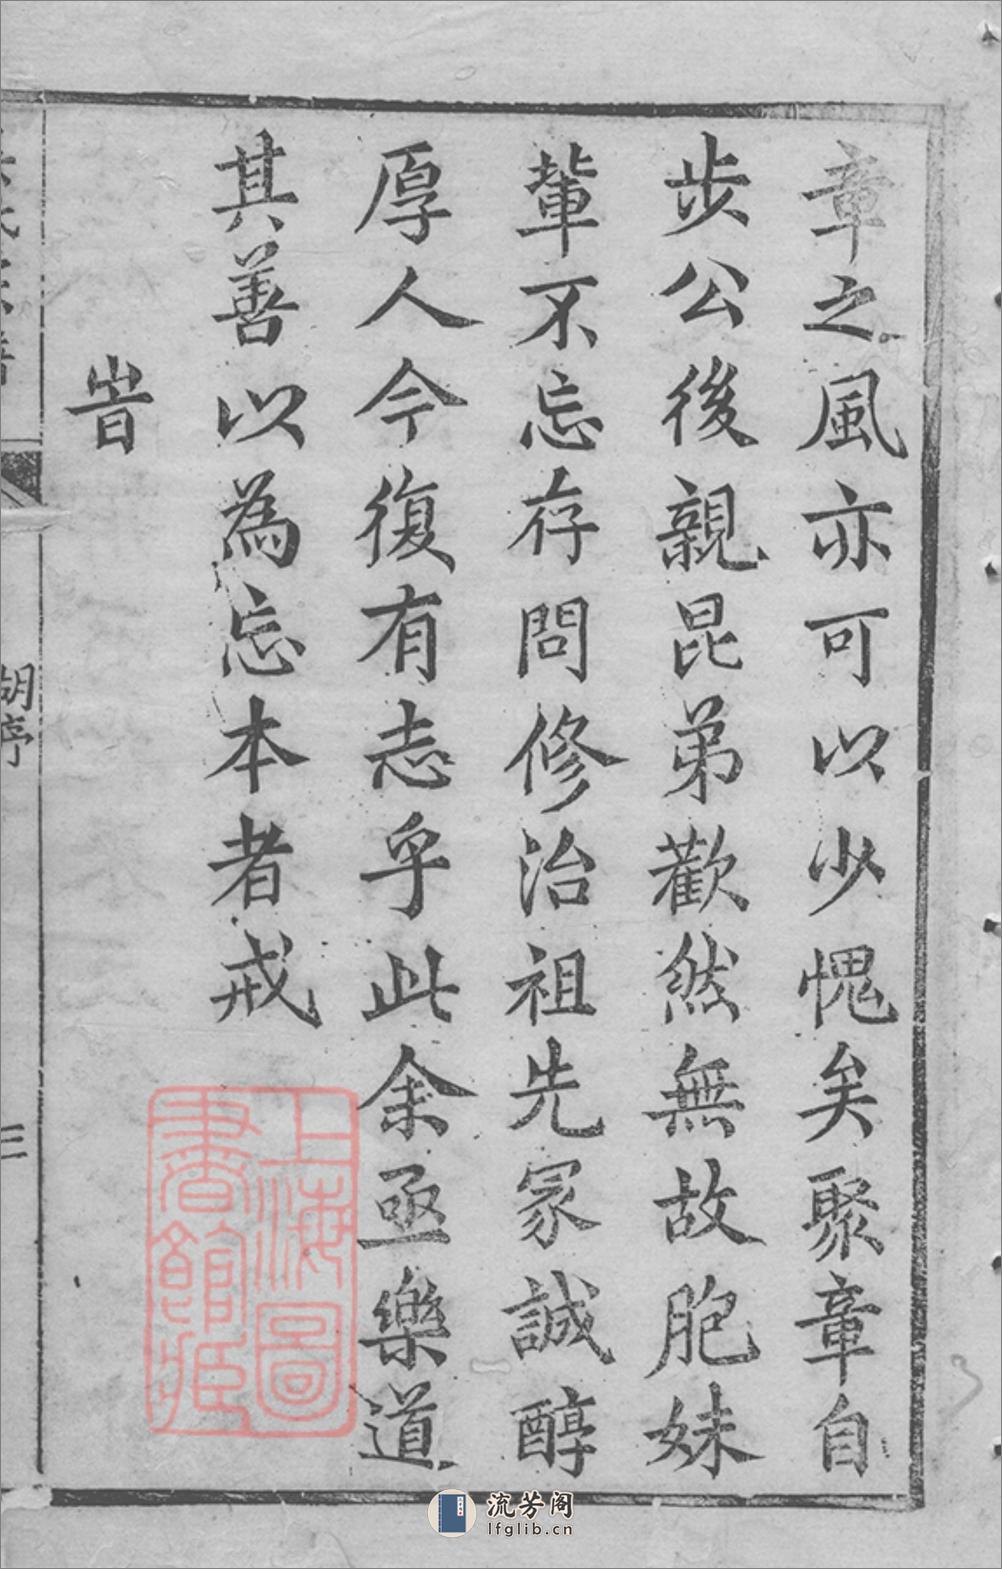 章之風亦可以少愧矣聚章自
步公後親昆弟歡然無故胞妹
輩不忘存問修治祖先冢誠醇
厚人今復有志乎此余亟樂道
其善以為忘本者戒
旹
胡序
三
上海圖
書館藏
流芳阁
lfglib.cn